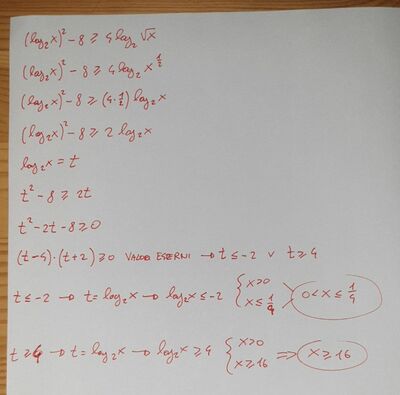 (log₂x)² - 8 ≥ 4 log₂ √x
(log₂x)² - 8 ≥ 4 log₂ x^½
(log₂x)² - 8 ≥ (4·½) log₂x
(log₂x)² - 8 ≥ 2 log₂x
log₂x = t
t² - 8 ≥ 2t
t² - 2t - 8 ≥ 0
(t-4)·(t+2) ≥ 0 VALORI ESTERNI → t ≤ -2 ∨ t ≥ 4
t ≤ -2 → t = log₂x → log₂x ≤ -2 { x>0 x ≤ 1/4 0 < x ≤ 1/4
t ≥ 4 → t = log₂x → log₂x ≥ 4 { x>0 x ≥ 16 ⇒ x ≥ 16